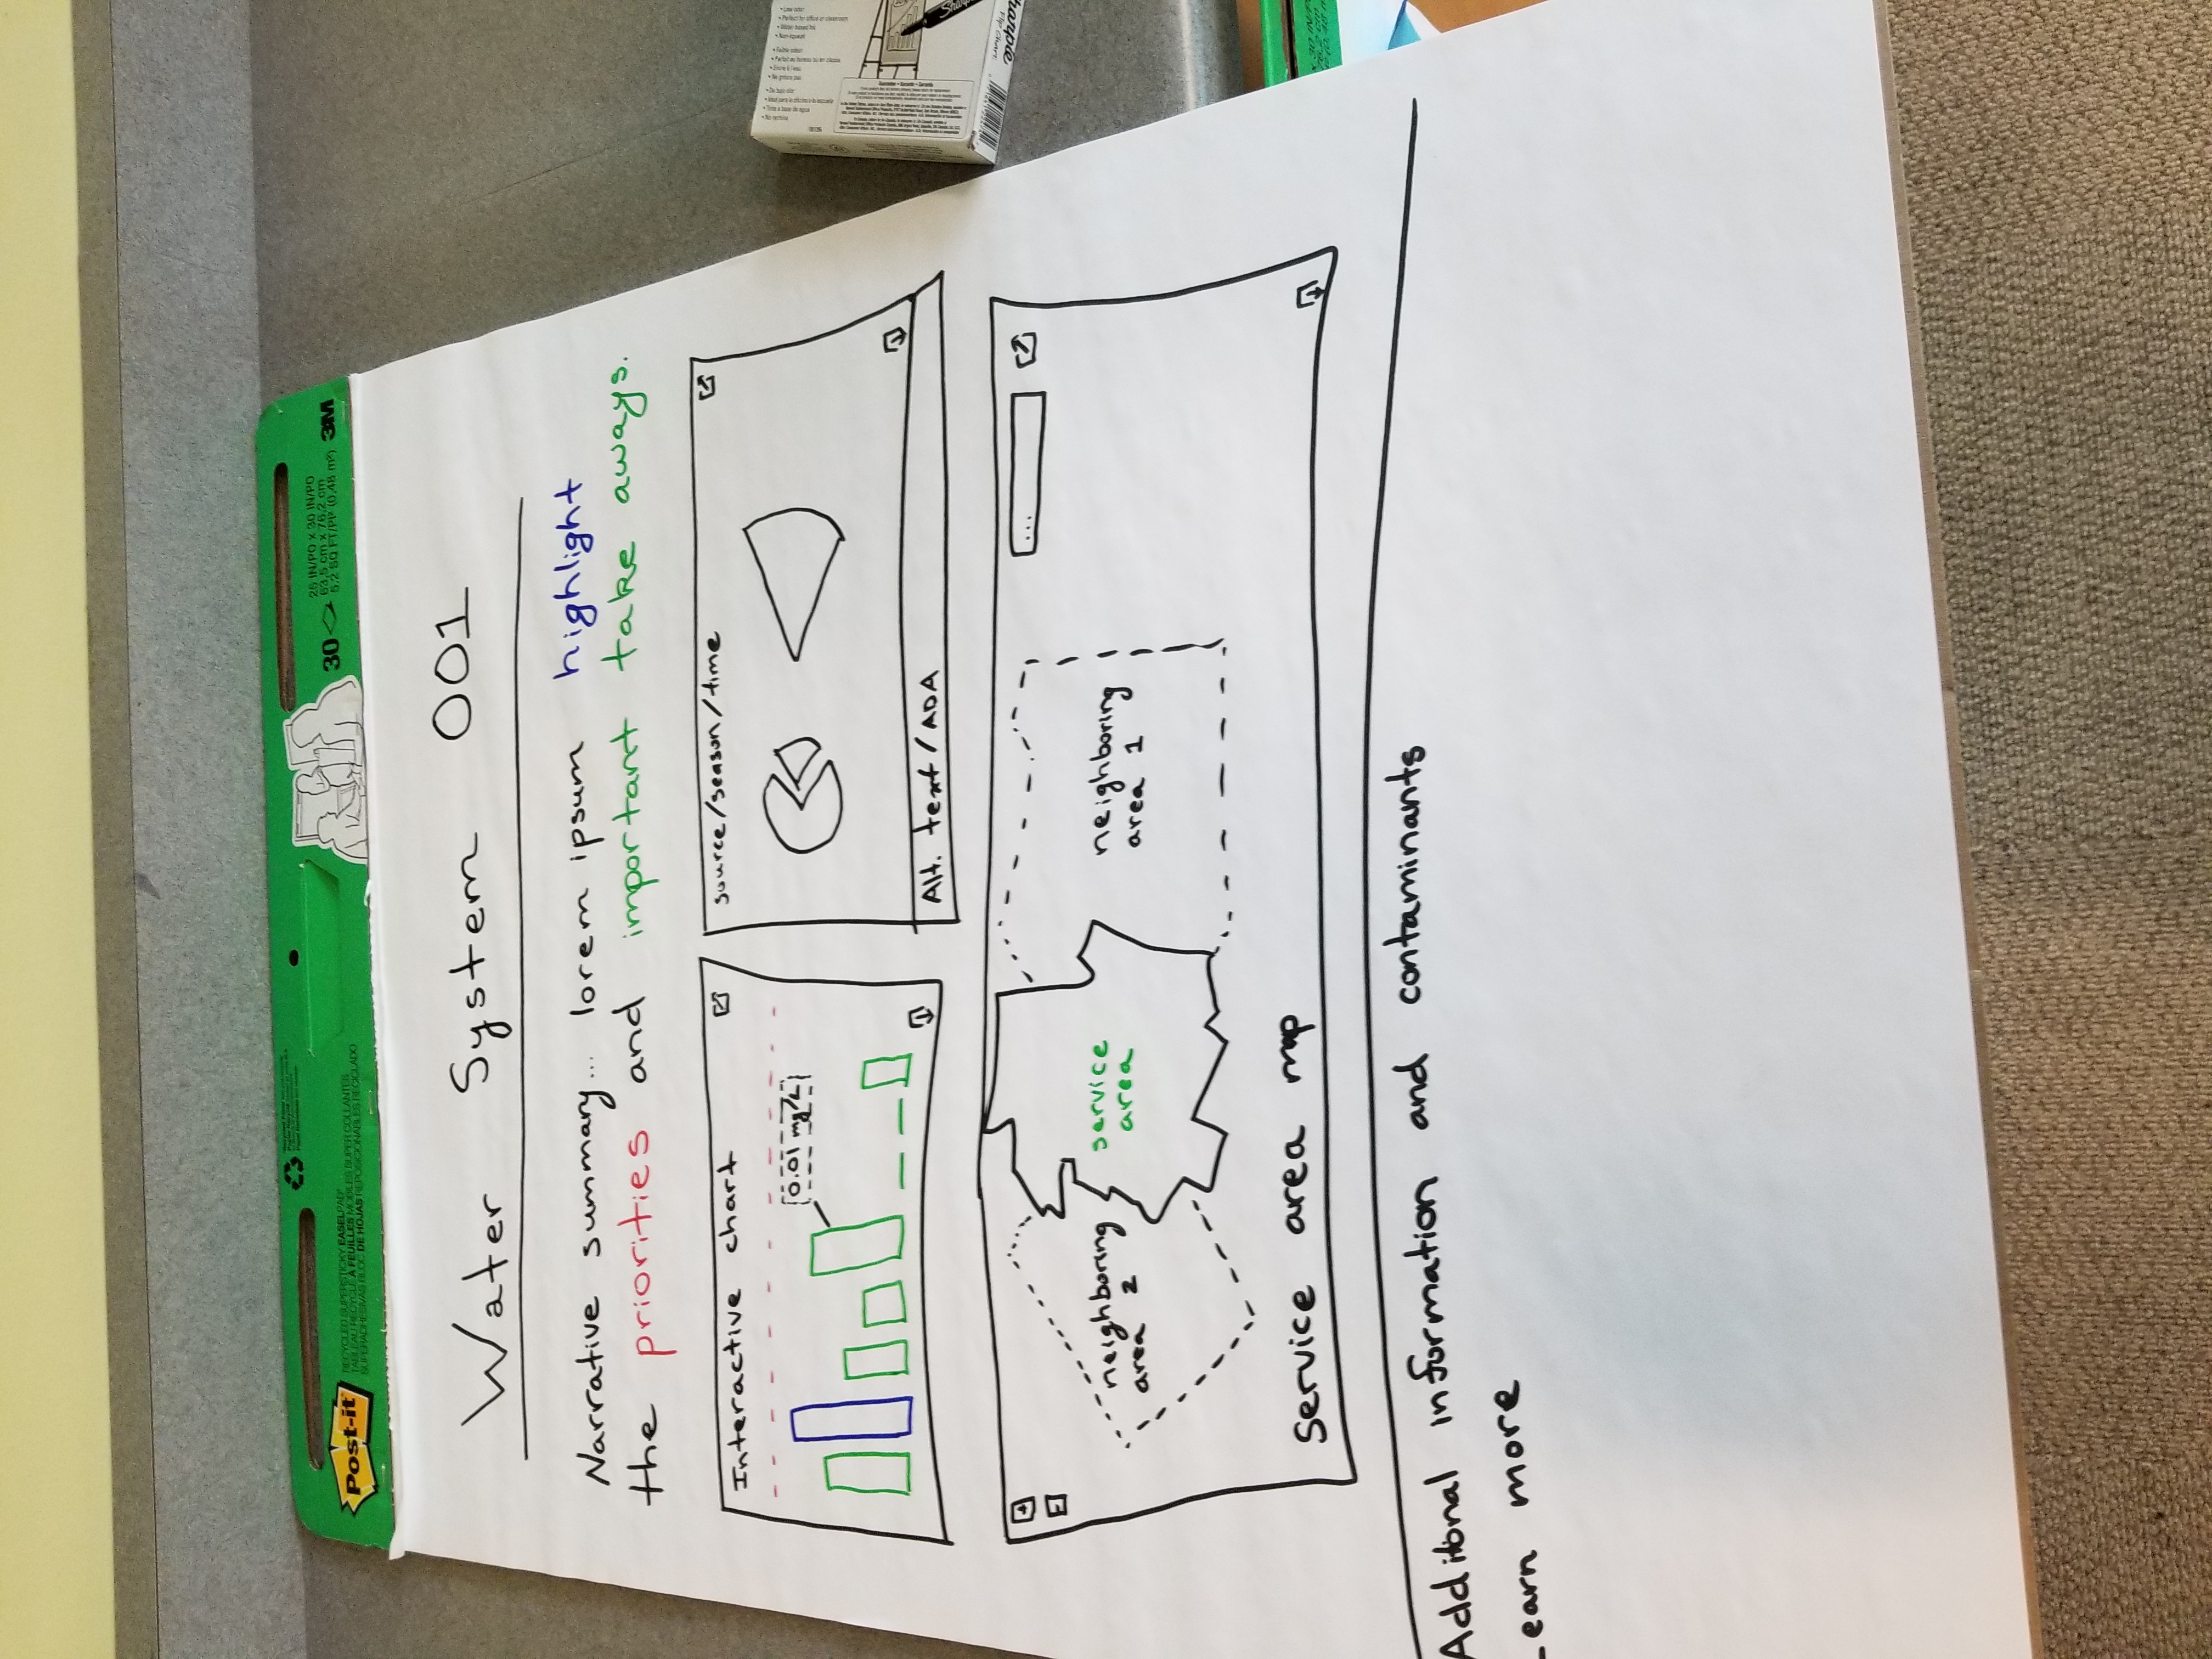 Post-it
RECYCLED SUPERSTICKY EASEL PAD
TABLEAU RECYCLÉ À FEUILLES MOBILES SUPER COLLANTES
SUPERADHESIVAS BLOC DE HOJAS REPOSICIONABLES RECICLADO
30
25 IN/PO x 30 IN/PO
63,5 cm x 76,2 cm
5.2 SQ FT/PI² (0,48 m²)
3M
Water System 001
Narrative summary... lorem ipsum highlight
the priorities and important take aways.
Interactive chart
0.01 mg/L
source/season/time
Alt. text / ADA
+
-
...
neighboring
area 2
service
area
neighboring
area 1
Service area map
Additional information and contaminants
Learn more
Sharpie
Flip Chart
x 30 IN/P
76,2 cm